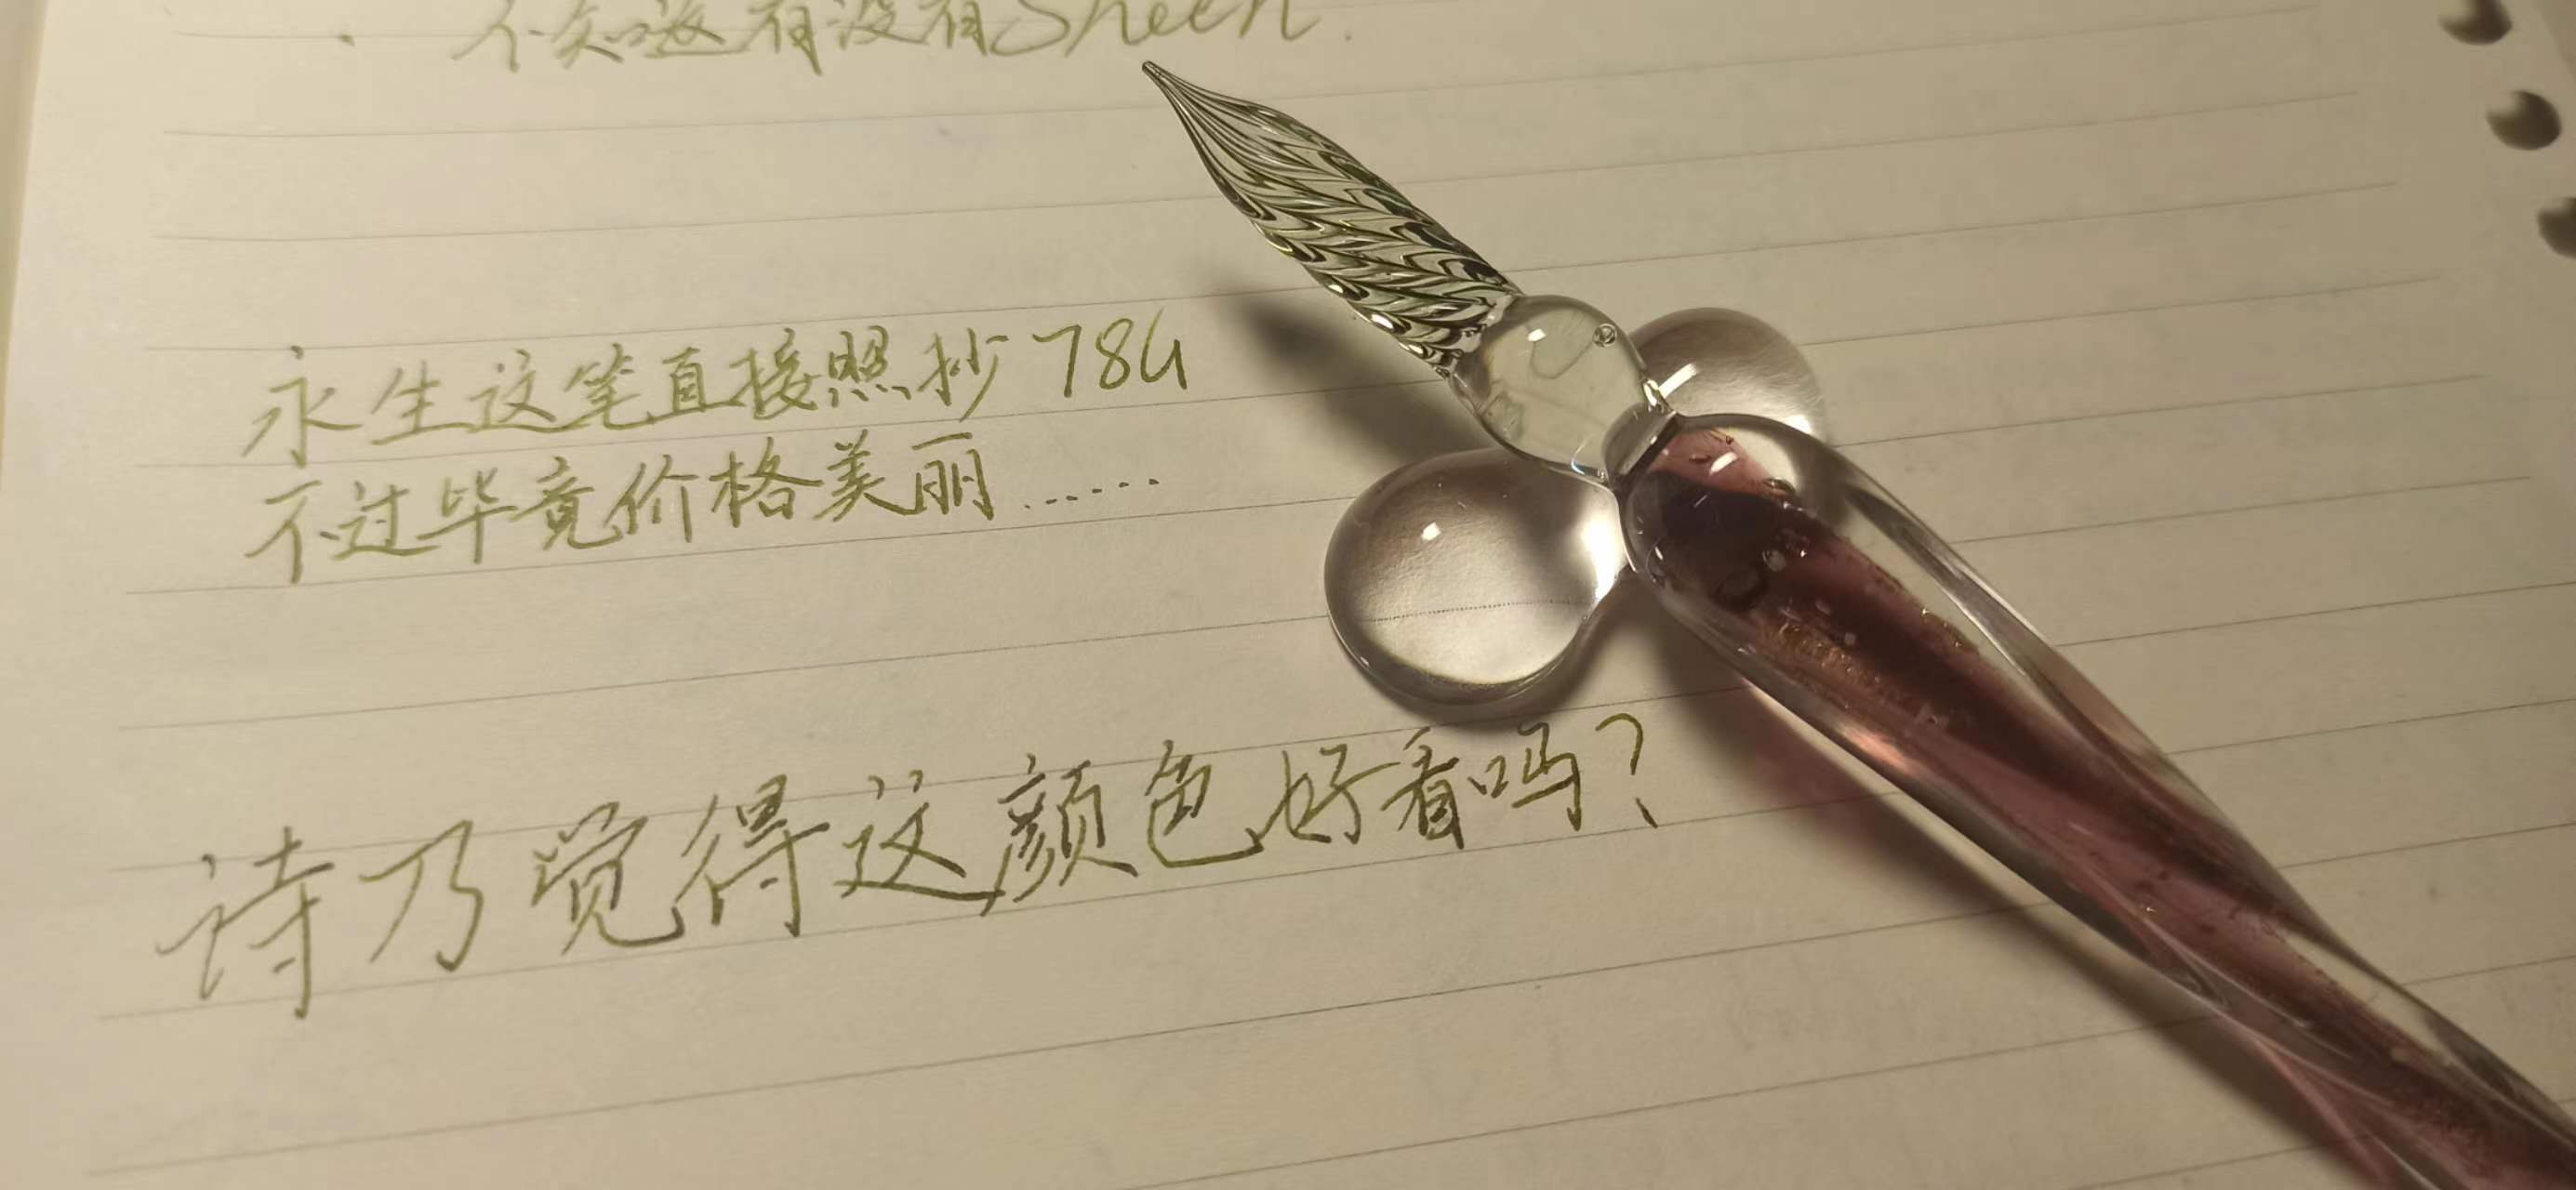 不知道有没有Sheen.
永生这笔直接照抄78G
不过毕竟价格美丽......
诗乃觉得这颜色好看吗?